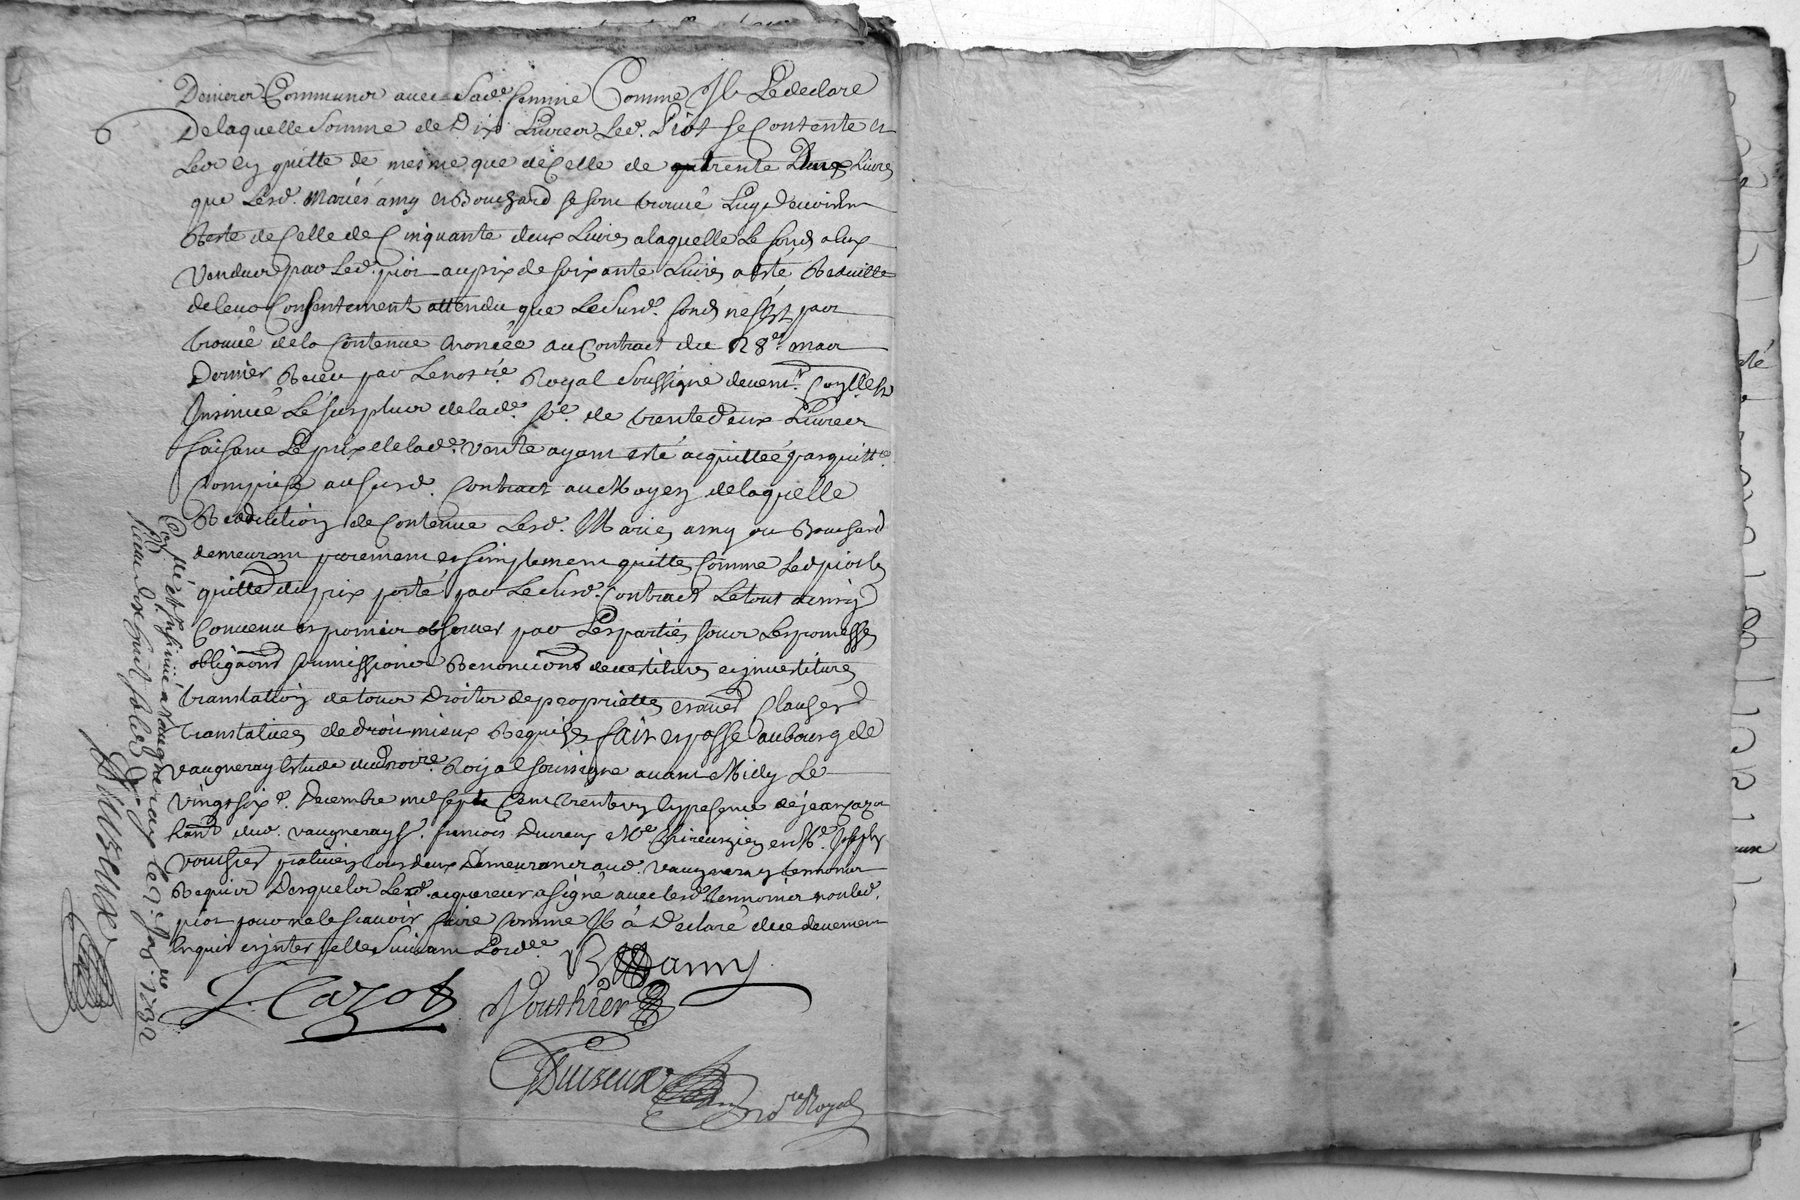 Deniers Communs avec Sad.e femme Comme Il Le declare
De laquelle Somme de Dix Livres Led. Piot se Contente et
Les en quitte de mesme que de Celle de trente Deux Livres
que Lesd. mariés amy et Bouchard se sont trouvé
Reste de Celle de Cinquante deux Livres a laquelle Le fond a eux
Vendus par Led. piot au prix de soixante Livres a esté Reduitte
de leur Consentement attendu que Le Susd. fond ne s'est pas
trouvé de la Contenue enoncée au Contract du 28.e mars
Dernier Receu par Le no.re Royal Soussigné devem.t Con.llé et
Insinué Le surplus de lad.e so.e de trente deux Livres
faisant Le prix de lad.e vente ayant esté acquittée par quitt.ce
Comprise au susd. Contract au Moyen de laquelle
Reduction de Contenue Lesd. Mariés amy et Bouchard
demeurent purement et simplement quittes Comme Led piot les
quitte du prix porté par Le Susd. Contract Le tout ainsy
Convenu et promis observer par Les parties sous Les promesses
obligaons soumissions Renonciaons devestitures et investitures
translation de tous Droits de proprietté et autres Clauses
translatives de droit mieux Requises fait et passé au bourg de
Vaugneray Estude dud no.re Royal soussigné avant Midy Le
Vingt six.e Decembre mil sept Cent trente un En presence de jean cazot
hant dud. vaugneray s.r francois Me Chirurgien et M.e Joseph
vouthier praticien tous deux Demeurants aud. vaugneray temoins
Requis Desquels Led. acquereur a signé avec lesd. temoins non led.
piot pour ne le scavoir faire Comme Il a Declaré de ce deuement
Enquis et interpellé Suivant Lord.ce
B amy
J. Cazot
Vouthier
Duiseux
no.re Royal
Con.llé et Insinué a Vaugneray le 2. Jan.r 1732
Receu dix huit sols
Duiseux